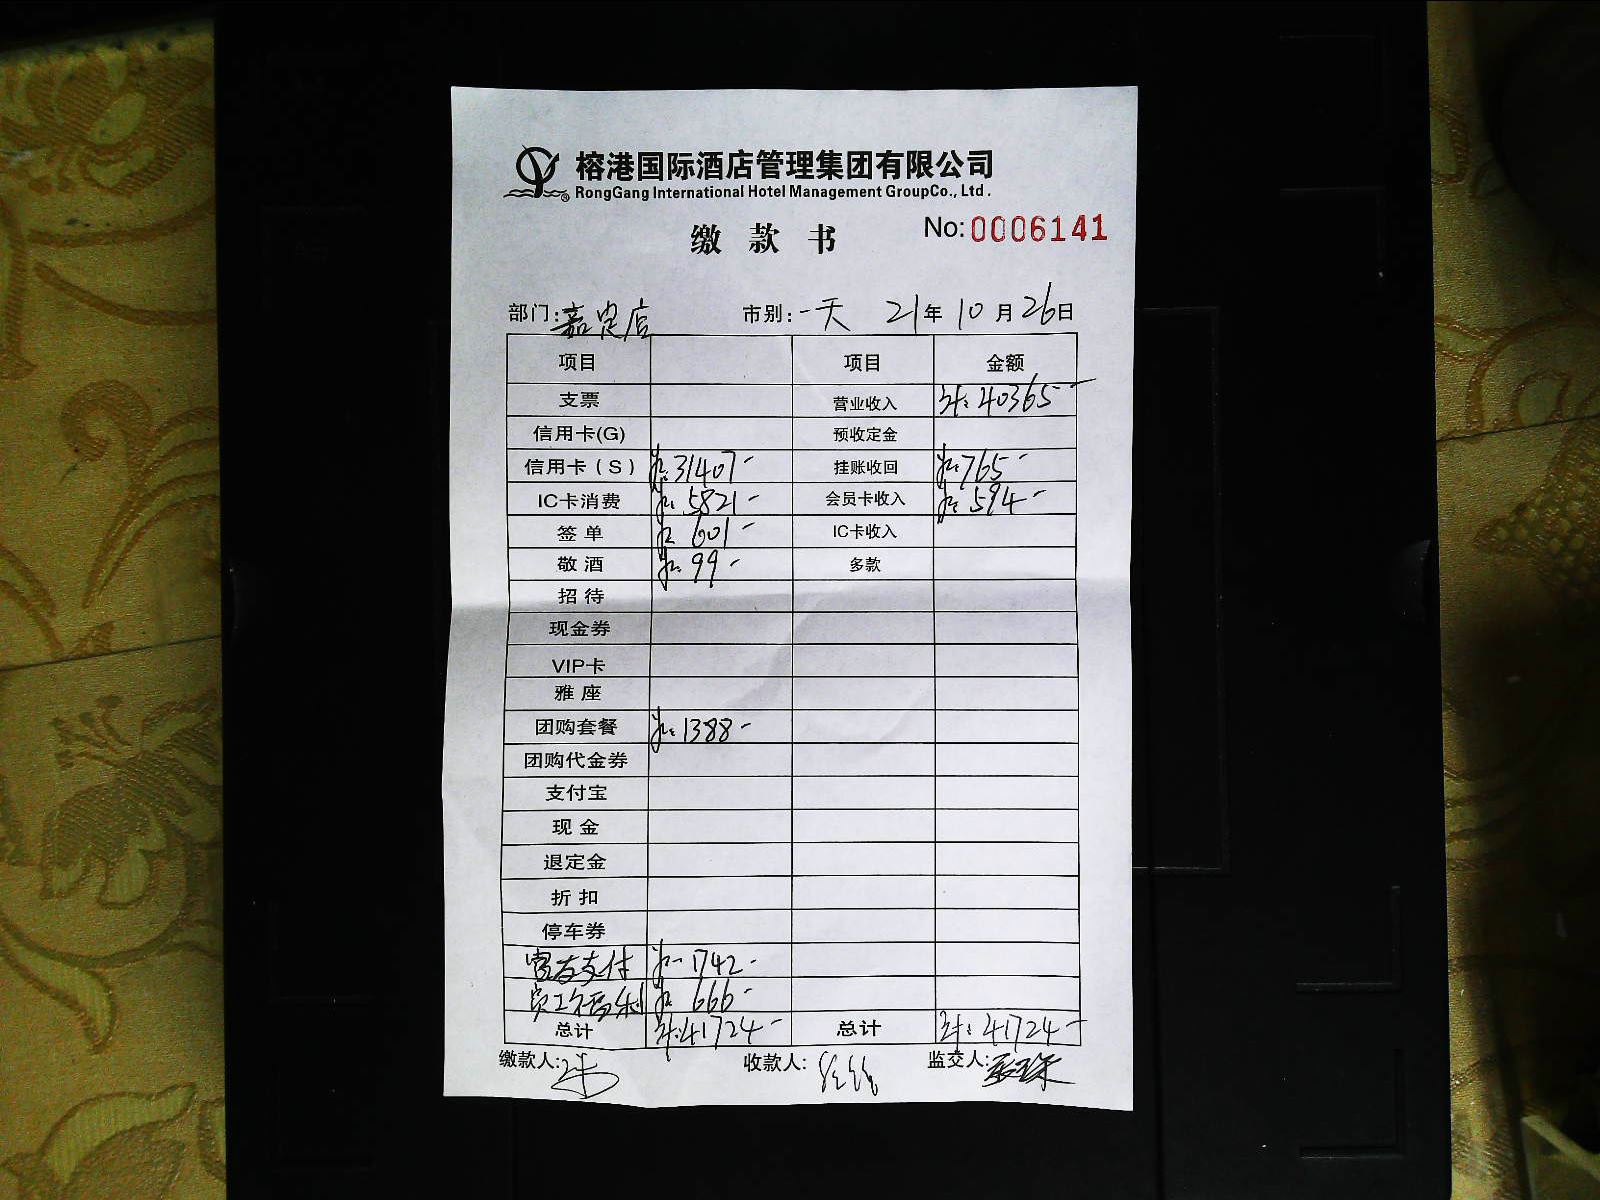 榕港国际酒店管理集团有限公司
RongGang International Hotel Management GroupCo., Ltd.
缴 款 书
No:0006141
部门:嘉定店 市别:一天 21年 10月 26日
项目 项目 金额
支票 营业收入 计:40365-
信用卡(G) 预收定金
信用卡(S) 31407- 挂账收回 765-
IC卡消费 5821- 会员卡收入 594-
签单 601- IC卡收入
敬酒 99- 多款
招待
现金券
VIP卡
雅座
团购套餐 1388-
团购代金券
支付宝
现金
退定金
折扣
停车券
支付 1742-
员工福利 666-
总计 计:41724- 总计 计:41724-
缴款人: 收款人: 监交人: